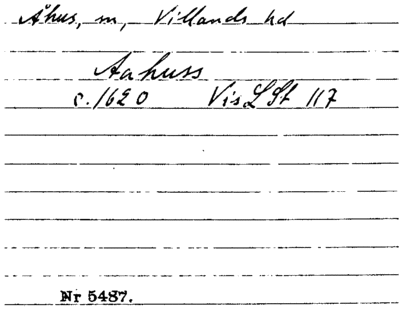 Åhus, sn, Villands hd
Aahuss
c. 1620 Vis LSt 117
Nr 5487.